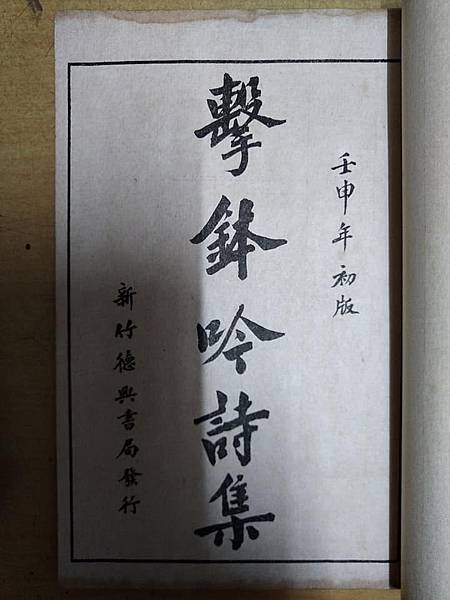 壬申年初版
擊鉢吟詩集
新竹德興書局發行